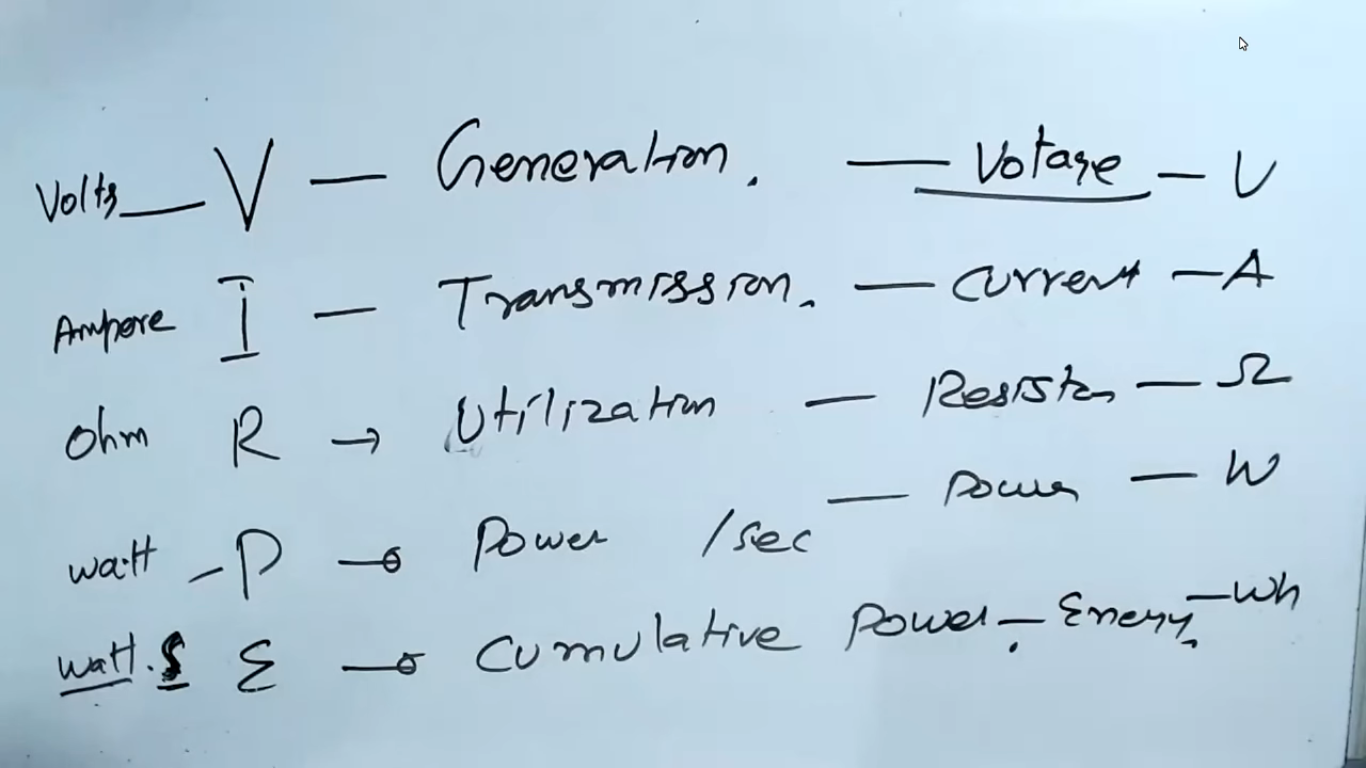 Volts — V — Generation. — Votage — V
Ampere I — Transmission. — Current — A
Ohm R → Utilization — Resistor — Ω
watt - P → Power /sec — Power — W
watt.s E → Cumulative Power — Energy. — Wh